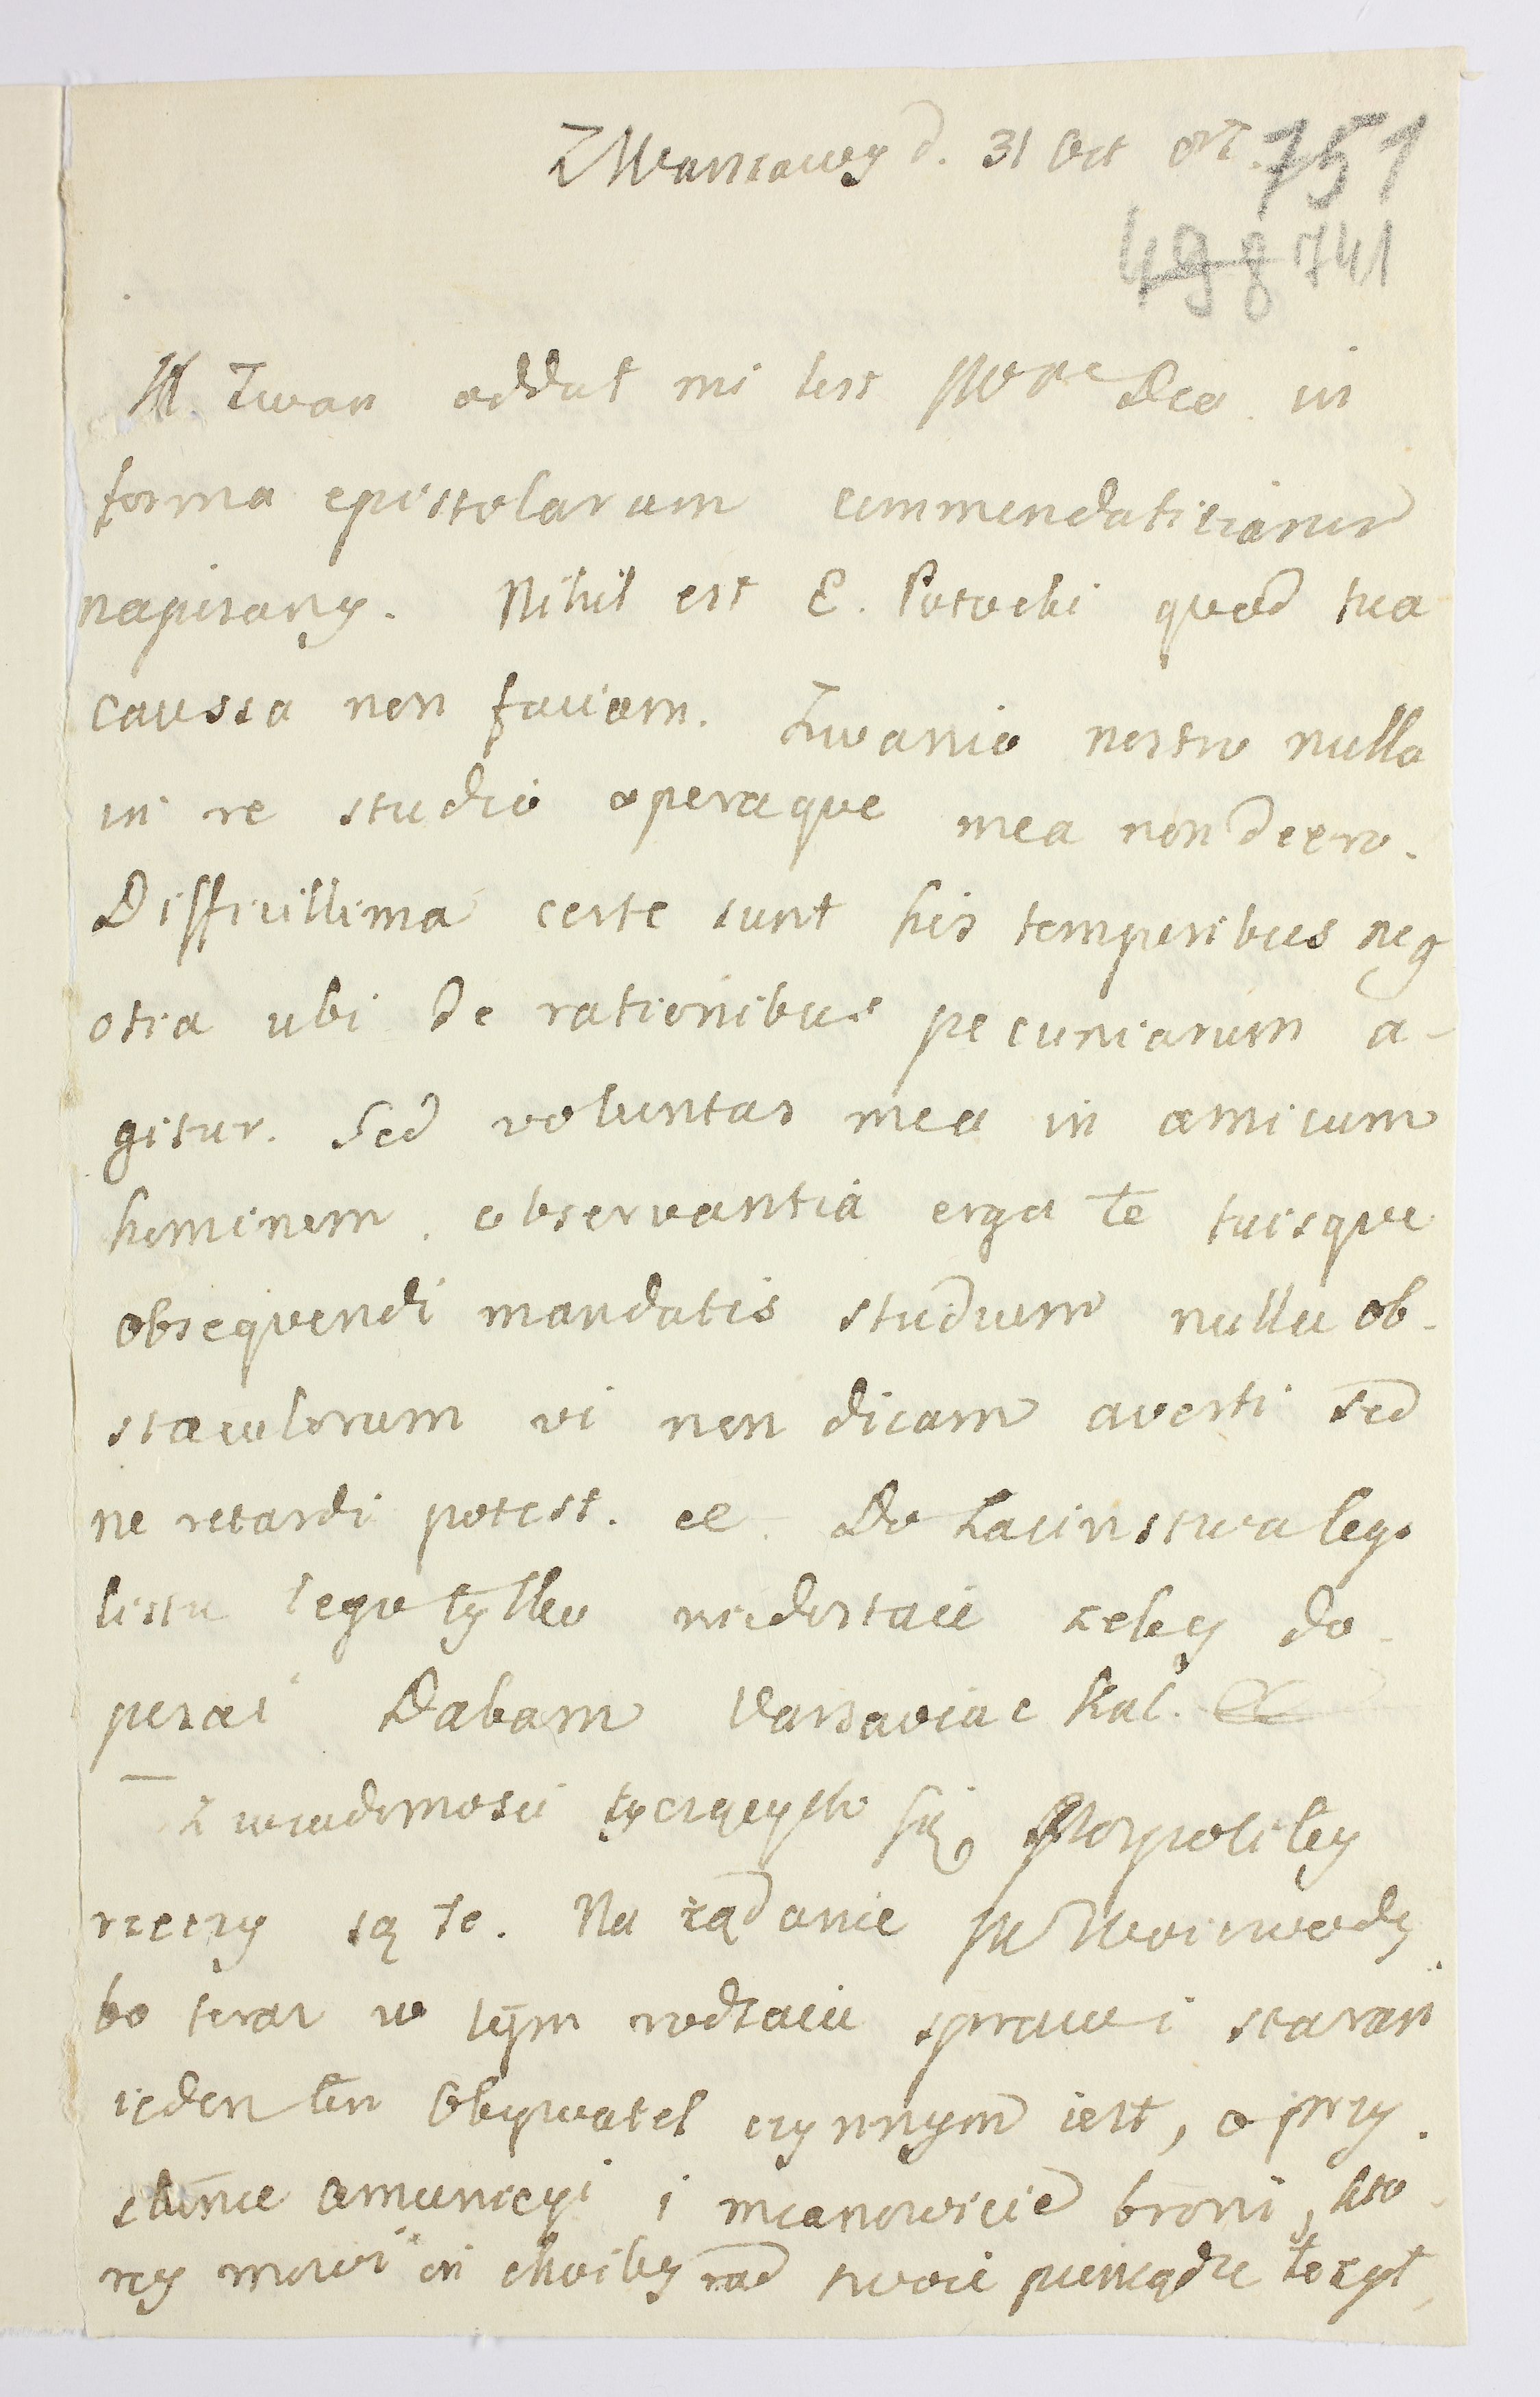 Z Warszawy d. 31 Oct
751
498 741
JP. Iwan oddał mi list WPana Dco in
forma epistolarum commendatitiarum
napisany. Nihil est E. Potocki quod tua
caussa non faciam. Iwanio nostro nulla
in re studio operaque mea non deero.
Difficillima certe sunt his temporibus neg
otia ubi de rationibus pecuniarum a-
gitur. Sed voluntas mea in amicum
hominem, observantia erga te tuisque
obsequendi mandatis studium nulla ob-
staculorum vi non dicam averti sed
ne retardi potest. Do Łacinstwa lego
listu tego tylko niedostaie zeby do-
pisac Dabam Varsaviae Kal.
Z wiadomosci tyczących się Pospolitey
rzeczy są te. Na rządanie JP Woiewody
bo teraz w tym rodzaiu spraw i staran
ieden ten Obywatel czynnym iest, o przy-
słanie amunicyi i mianowicie broni, kto-
rey mowi on choćby rad swoie pieniądze łożył,